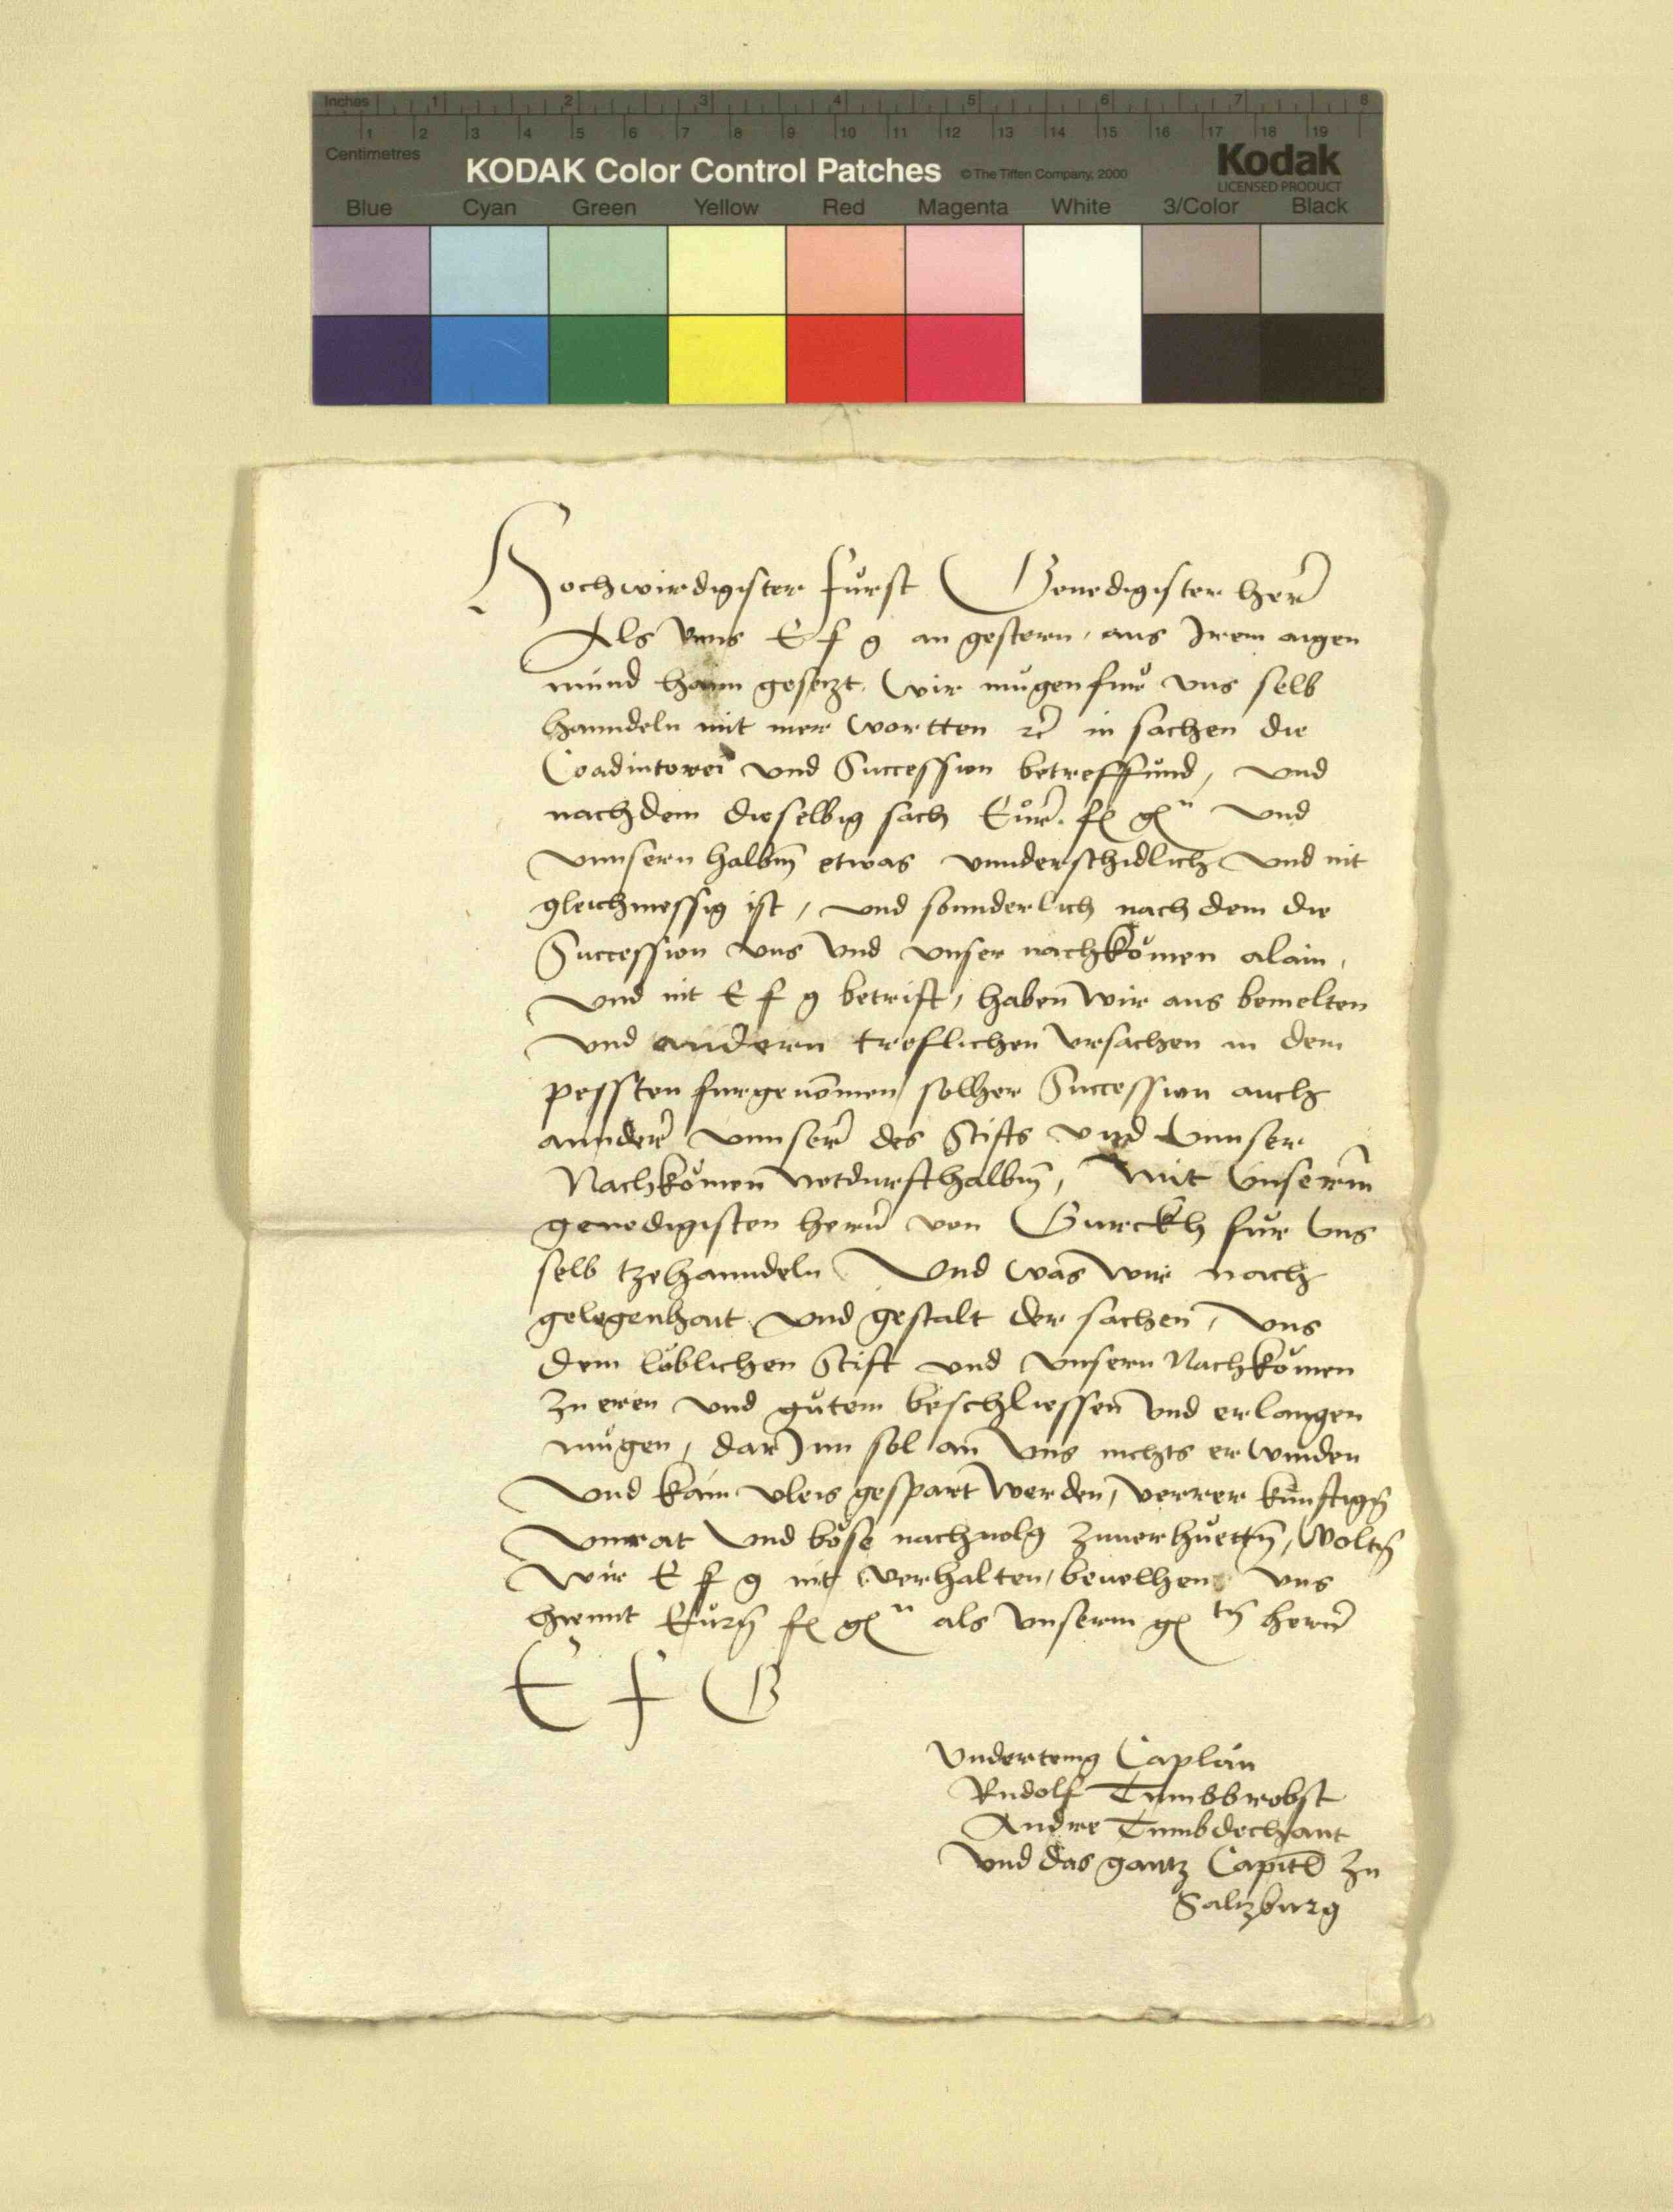 Inches 1 2 3 4 5 6 7 8
1 2 3 4 5 6 7 8 9 10 11 12 13 14 15 16 17 18 19
Centimetres
KODAK Color Control Patches © The Tiffen Company, 2000 Kodak
LICENSED PRODUCT
Blue Cyan Green Yellow Red Magenta White 3/Color Black
Hochwirdigister fürst Genedigister herr
Als vnns E f g an gestern, aus Irem aigen
mund haim gesetzt, wir mügen für vns selb
hanndeln mit mer wortten rc in sachen die
Coadiutorei vnd Succession betreffund, vnd
nachdem dieselbig sach Eur. f gn vnd
vnnsern halbm etwas vnnderschidlich vnd nit
gleichmessig ist, vnd sonnderlich nach dem die
Succession vns vnd vnser nachkömen alain,
vnd nit E f g betrift, haben wir aus bemelten
vnd andern treflichen vrsachen in dem
pessten furgenomen solher Succession auch
annder vnnser des Stifts vnd vnnser
Nachkömen notdurfthalbm, mit vnserm
genedigisten herrn von Gurckh für vns
selb tzehanndeln Vnd was wir nach
gelegenhait vnd gestalt der sachen, vns
dem löblichen Stift vnd vnsern Nachkömen
zu eren vnd gutem beschliessen vnd erlangen
mügen, dar Inn sol an vns nichts erwinden
vnd kain vleis gespart werden, verrer künftign
vnrat vnd böse nachuolg zuuerhuettn, woltn
wir E f g nit verhalten, beuelhen vns
hiemit Eurn f gn als vnserm g tn herrn
E f G
Vndertenig Caplän
Rudolf Tumbbrobst
Andre Tumbdechant
vnd das gantz Capitl zu
Saltzburg